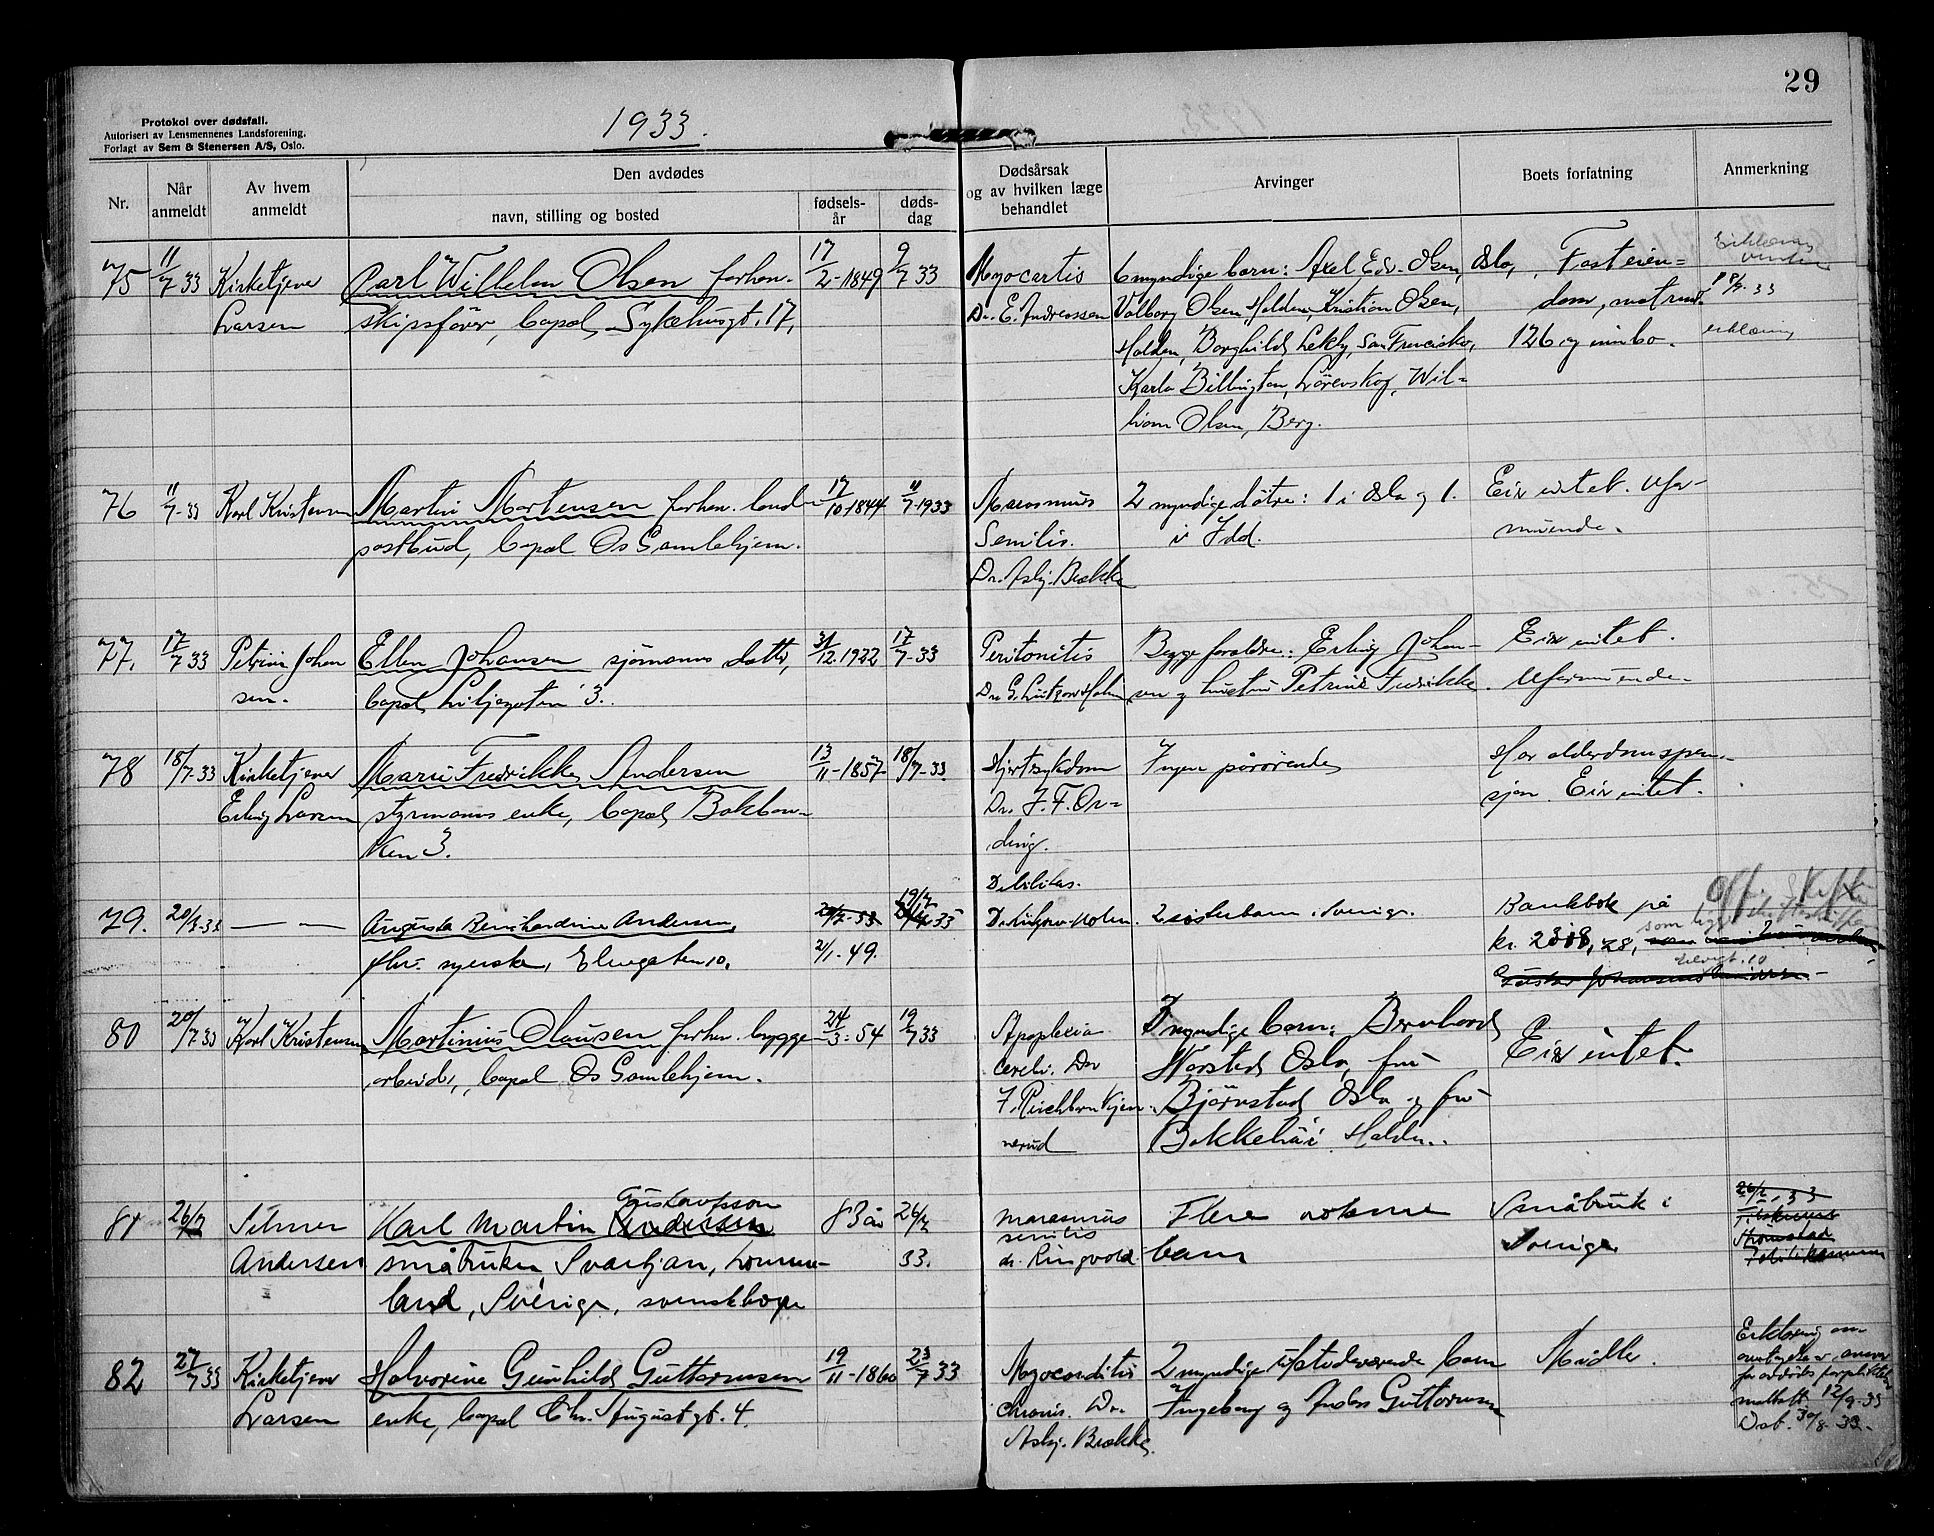 29
1933.
Protokol over dødsfall.
Autorisert av Lensmennenes Landsforening.
Forlagt av Sem & Stenersen A/S, Oslo.
Nr.
Når anmeldt
Av hvem anmeldt
Den avdødes
navn, stilling og bosted
fødsels-år
døds-dag
Dødsårsak og av hvilken læge behandlet
Arvinger
Boets forfatning
Anmerkning
75 11/7 33 Kirketjener Carl Wilhelm Olsen forhen. 17/2-1849 9/7 33 Myocartis 6 myndige barn: Axel Edv. Olsen, Oslo, Fast eien=
Larsen skipsfører, bopæl, Sykehusgt. 17, Dr. E. Andreassen Valborg Olsen, Halden, Kristian Olsen, dom, matr.nr.
Halden, Borghild, San Francisko, 126 og innbo.
Karla Billington, Lørenskog, Wil=
liam Olsen, Berg.
erklæring
76 11/7-33 Karl Kristensen Martin Martensen forhen. land- 17/10-1844 11/7-1933 Marasmus 2 myndige døtre: 1 i Oslo og 1. Eier intet. Ufor-
postbud, bopæl Os Gamlehjem. Senilis. i Idd. muende.
Dr. Asbj. Brække
77. 17/7 33 Petrine Johan Ellen Johansen sjømanns datter, 31/12.1922 17/7-33 Peritonitis Begge foreldre: Erling Johan- Eier intet.
sen. bopæl, Liljegaten 3. Dr. G. Lützow Holm sen og hustru Petrine Fredrikke. Uformuende.
78 18/7-33 Kirketjener Marie Fredrikke Andersen 13/11-1857 18/7-33 Hjertesykdom Ingen pårørende Har alderdomspen-
Erling Larsen styrmanns enke, bopæl, Bakban- Dr. J. F. Or= sjon. Eier intet.
ken 3. ding.
Debilitas.
79. 20/7-33 — — Augusta Bernhardine Andersen, 19/7 33 Dr. Lützow-Holm. 2 søsterbarn i Sverige. Bankbok på
fhv. syerske, Elvegaten 10. 2/1-49. kr. 2308,28, som
Elvegt. 10
80 20/7-33 Karl Kristensen Martinius Olaussen forhen. bygge- 24/3-54 19/7 33 Apoplexia 3 myndige barn: Bernhard Eier intet.
arbeider, bopæl Os Gamlehjem. cerebri. Dr Harstad Oslo, fru
Bjørnstad Oslo og fru
nerud Bakkehøi Halden.
81 26/7 Selmer Karl Martin Andersen Gustavsson 83 år 26/7 33. marasmus senilis Flere voksne Småbruk i
Andersen småbruker, Svartjan, Lomme- dr. Ringvold. barn Sverige
land, Sverige, svensk borger
Strømstad
82 27/7 33 Kirketjener Halvorine Gunhild Guttormsen 19/11-1860 23/7 33 Myocarditis 2 myndige tilstedeværende barn Midler. Erklæring om
Larsen enke, bopæl Chr. Augustgt. 4. chronis. Dr. Ingeborg og Anders Guttormsen
Asbj. Brække. mottatt 12/9-33
30/8-33.